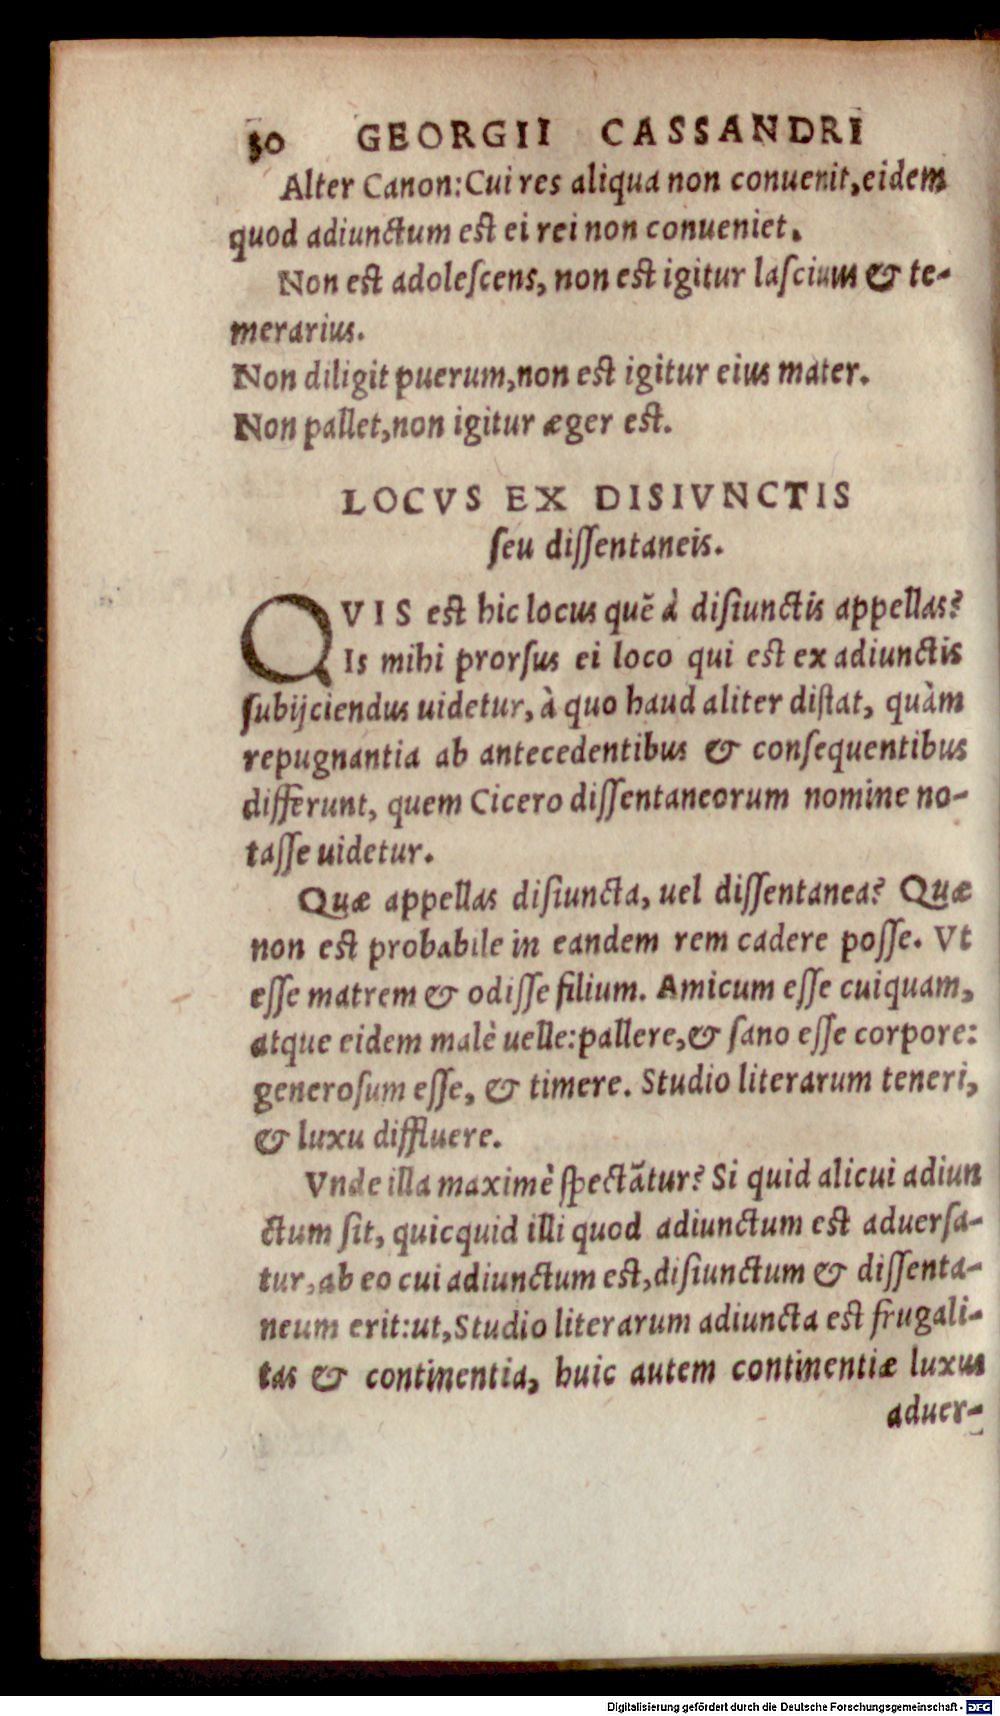 30 GEORGII CASSANDRI
Alter Canon:Cui res aliqua non conuenit,eidem
quod adiunctum est ei rei non conueniet.
Non est adoleſcens, non est igitur laſciuus & te-
merarius.
Non diligit puerum,non est igitur eius mater.
Non pallet,non igitur æger est.
LOCVS EX DISIVNCTIS
ſeu diſſentaneis.
QVIS est hic locus quē à diſiunctis appellas?
Is mihi prorſus ei loco qui est ex adiunctis
ſubijciendus uidetur, à quo haud aliter diſtat, quàm
repugnantia ab antecedentibus & conſequentibus
differunt, quem Cicero diſſentaneorum nomine no-
taſſe uidetur.
Quæ appellas diſiuncta, uel diſſentanea? Quæ
non est probabile in eandem rem cadere poſſe. Vt
eſſe matrem & odiſſe filium. Amicum eſſe cuiquam,
atque eidem malè uelle:pallere,& ſano eſſe corpore:
generoſum eſſe, & timere. Studio literarum teneri,
& luxu diffluere.
Vnde illa maximè ſpectātur? Si quid alicui adiun
ctum ſit, quicquid illi quod adiunctum est aduerſa-
tur,ab eo cui adiunctum est,diſiunctum & diſſenta-
neum erit:ut,Studio literarum adiuncta est frugali-
tas & continentia, huic autem continentiæ luxus
aduer-
Digitalisierung gefördert durch die Deutsche Forschungsgemeinschaft - DFG